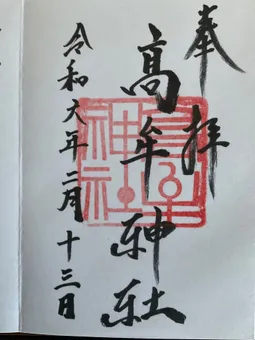 奉拝
高牟神社
令和六年二月十三日
高牟
神社